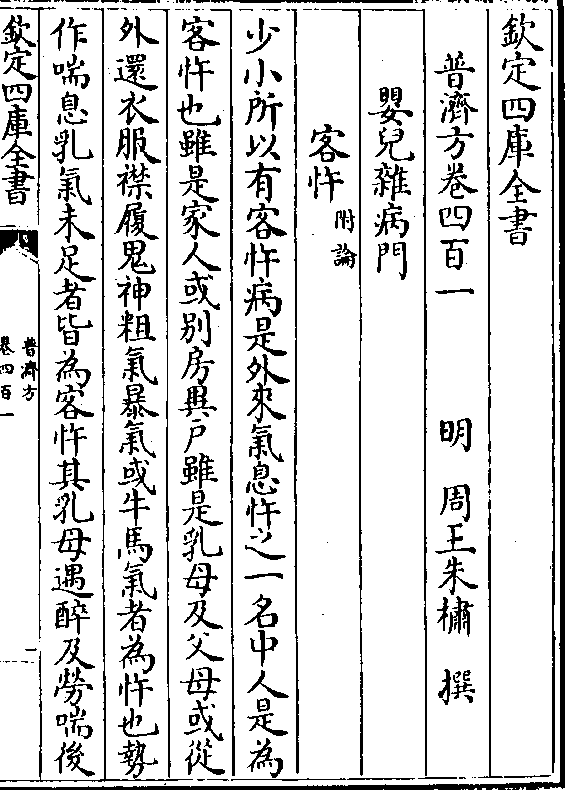 欽定四庫全書
普濟方卷四百一　明　周王朱橚　撰
嬰兒雜病門
客忤附論
少小所以有客忤病是外來氣息忤之一名中人是為
客忤也雖是家人或别房異户雖是乳母及父母或從
外還衣服襟履鬼神粗氣暴氣或牛馬氣者為忤也勢
作喘息乳氣未足者皆為客忤其乳母遇醉及勞喘後
欽定四庫全書
普濟方
卷四百一
一